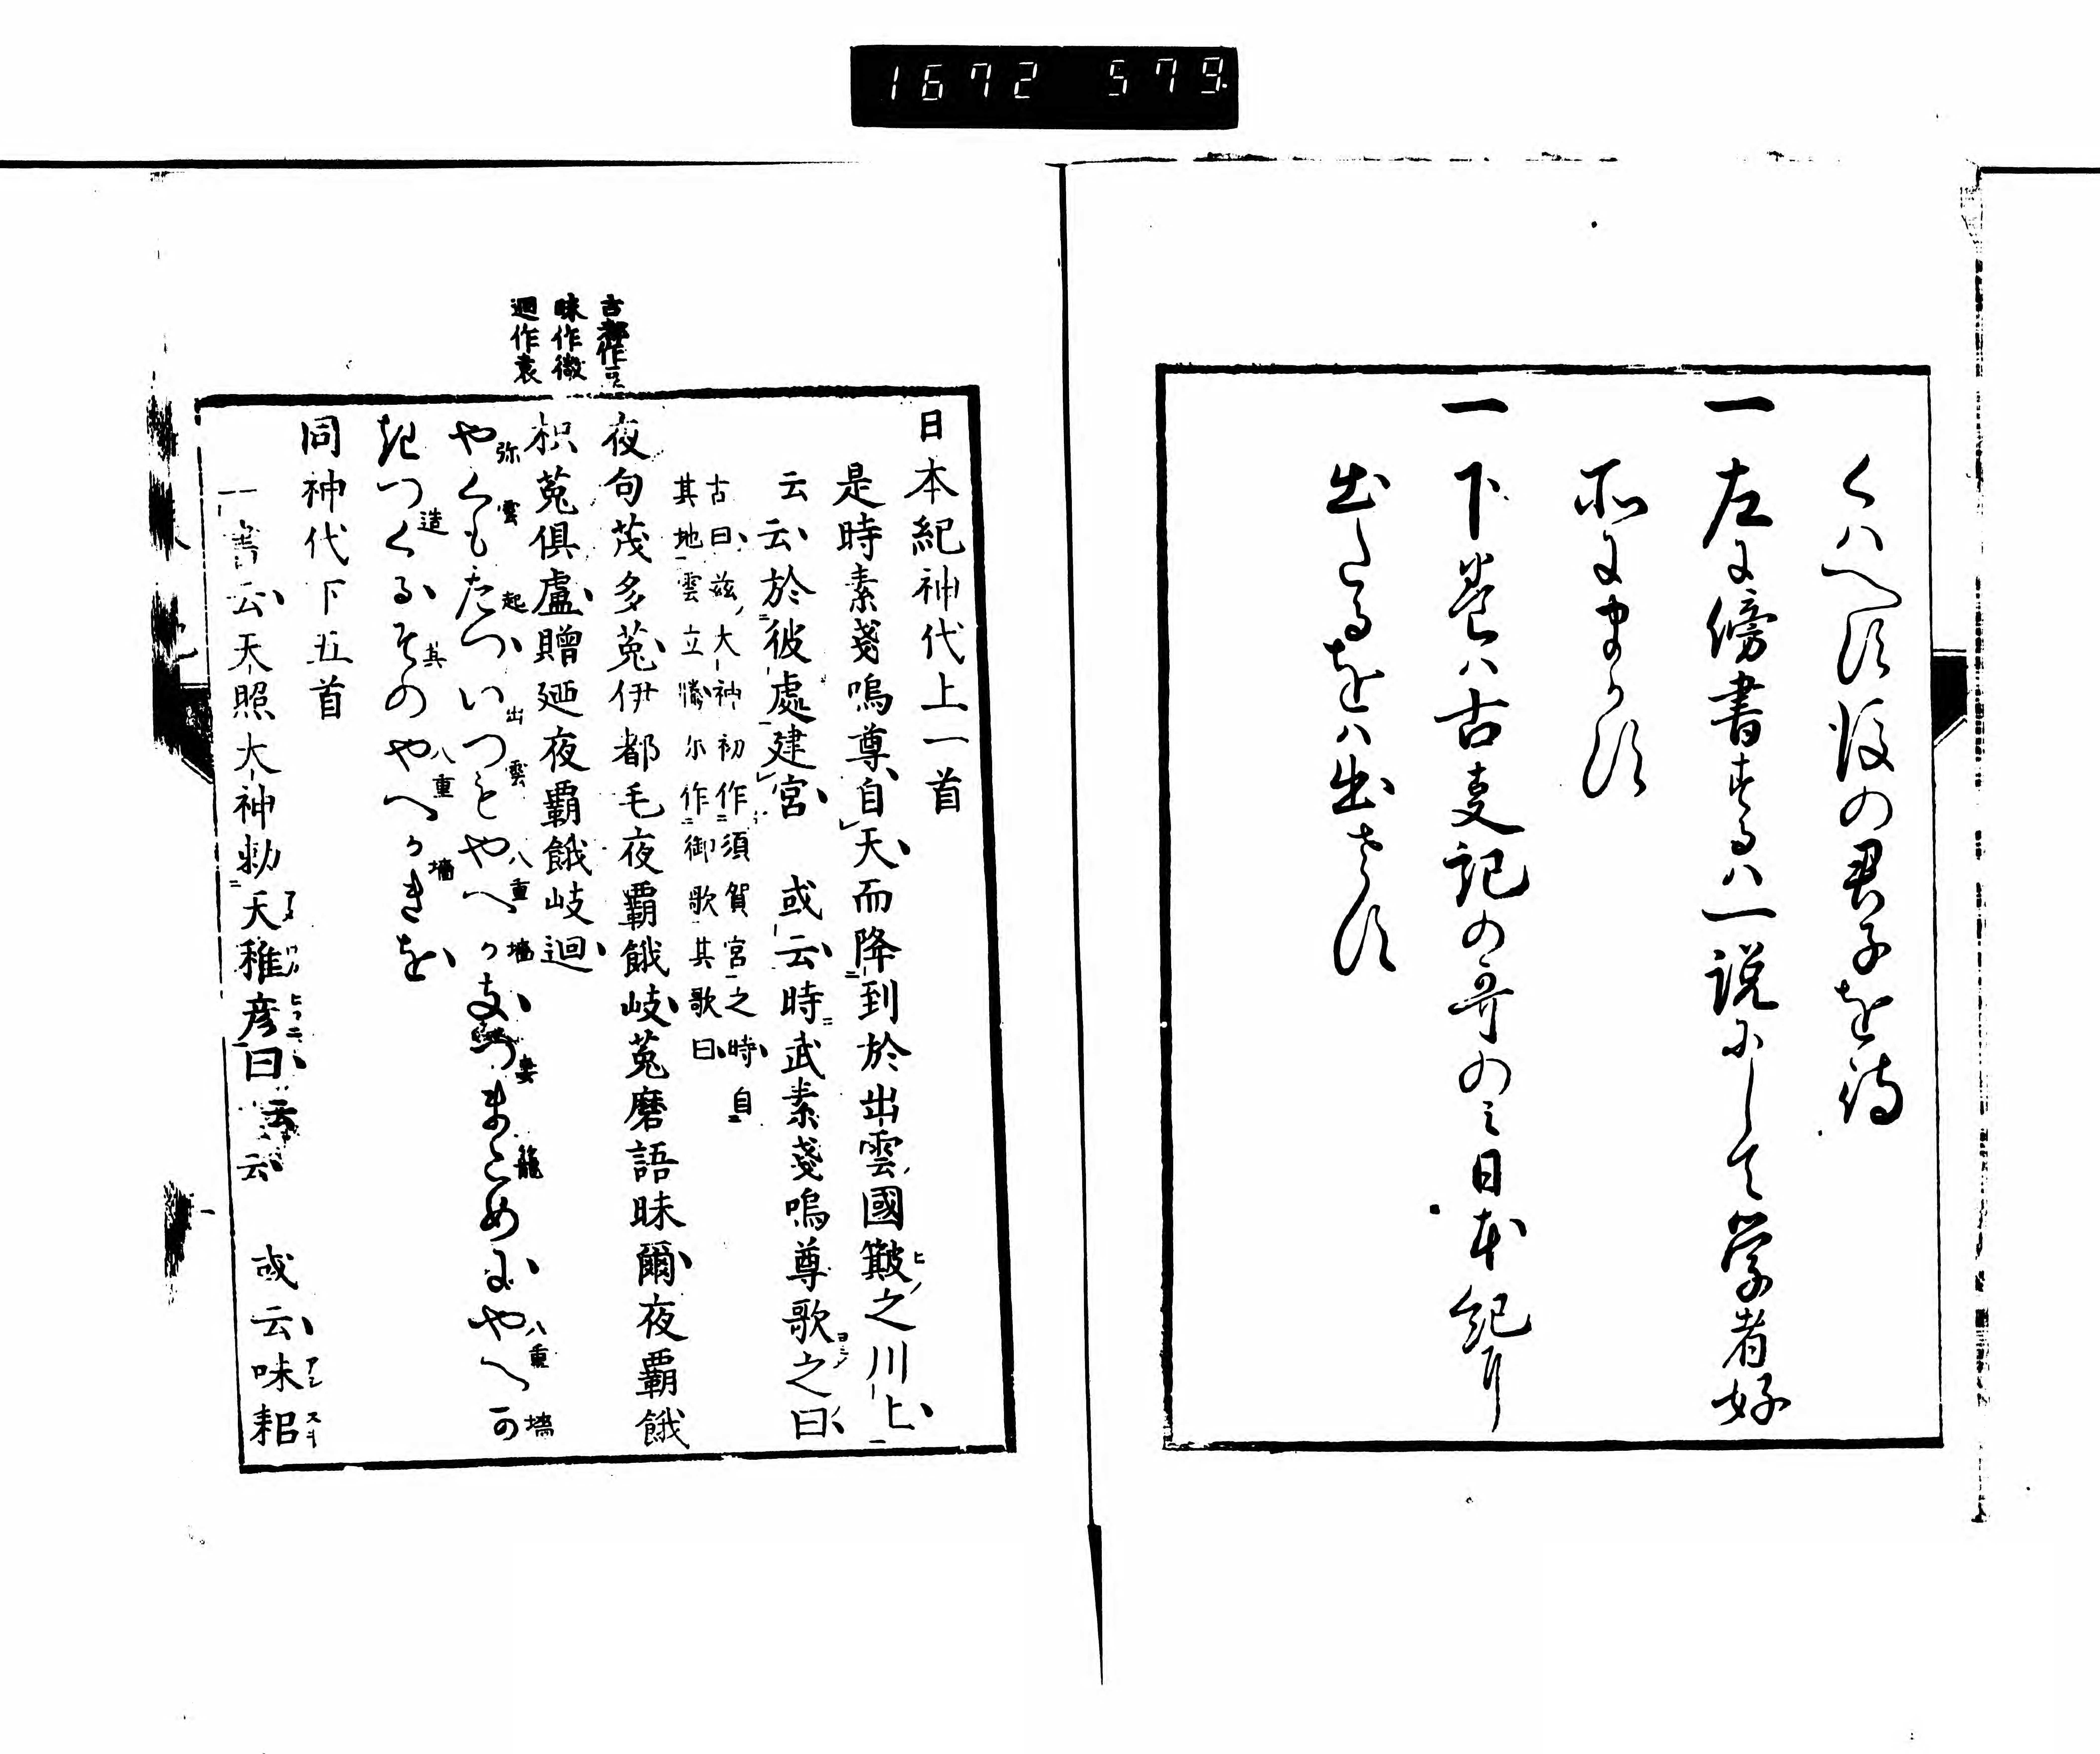 1672 579
くハへす後の君子を待
一 左に傍書するハ一説にして学者好
所にまかす
一 下巻ハ古事記の哥のミ日本紀に
出たるをハ出さす
古都作豆
昧作微
廻作袁
日本紀神代上一首
是時素戔嗚尊自天而降到於出雲國簸之川上
云云於彼處建宮　或云時武素戔嗚尊歌之曰
古曰玆大神初作須賀宮之時自
其地雲立騰尓作御歌其歌曰
夜句茂多菟伊都毛夜覇餓岐菟磨語昧爾夜覇餓
枳菟倶盧贈廼夜覇餓岐廻
やくもたついつもやへかきつまこめにやへか
弥雲起出雲八重墻妻籠八重墻
きつくるそのやへかきを
造其八重墻
同神代下五首
一書云天照大神勅天稚彦曰云云　或云味耜